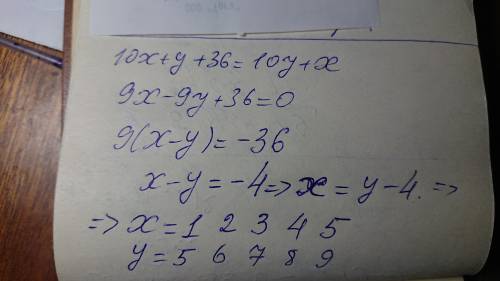 10x+y+36=10y+x
9x-9y+36=0
9(x-y)=-36
x-y=-4=>x=y-4.=>
=>x=1 2 3 4 5
y=5 6 7 8 9